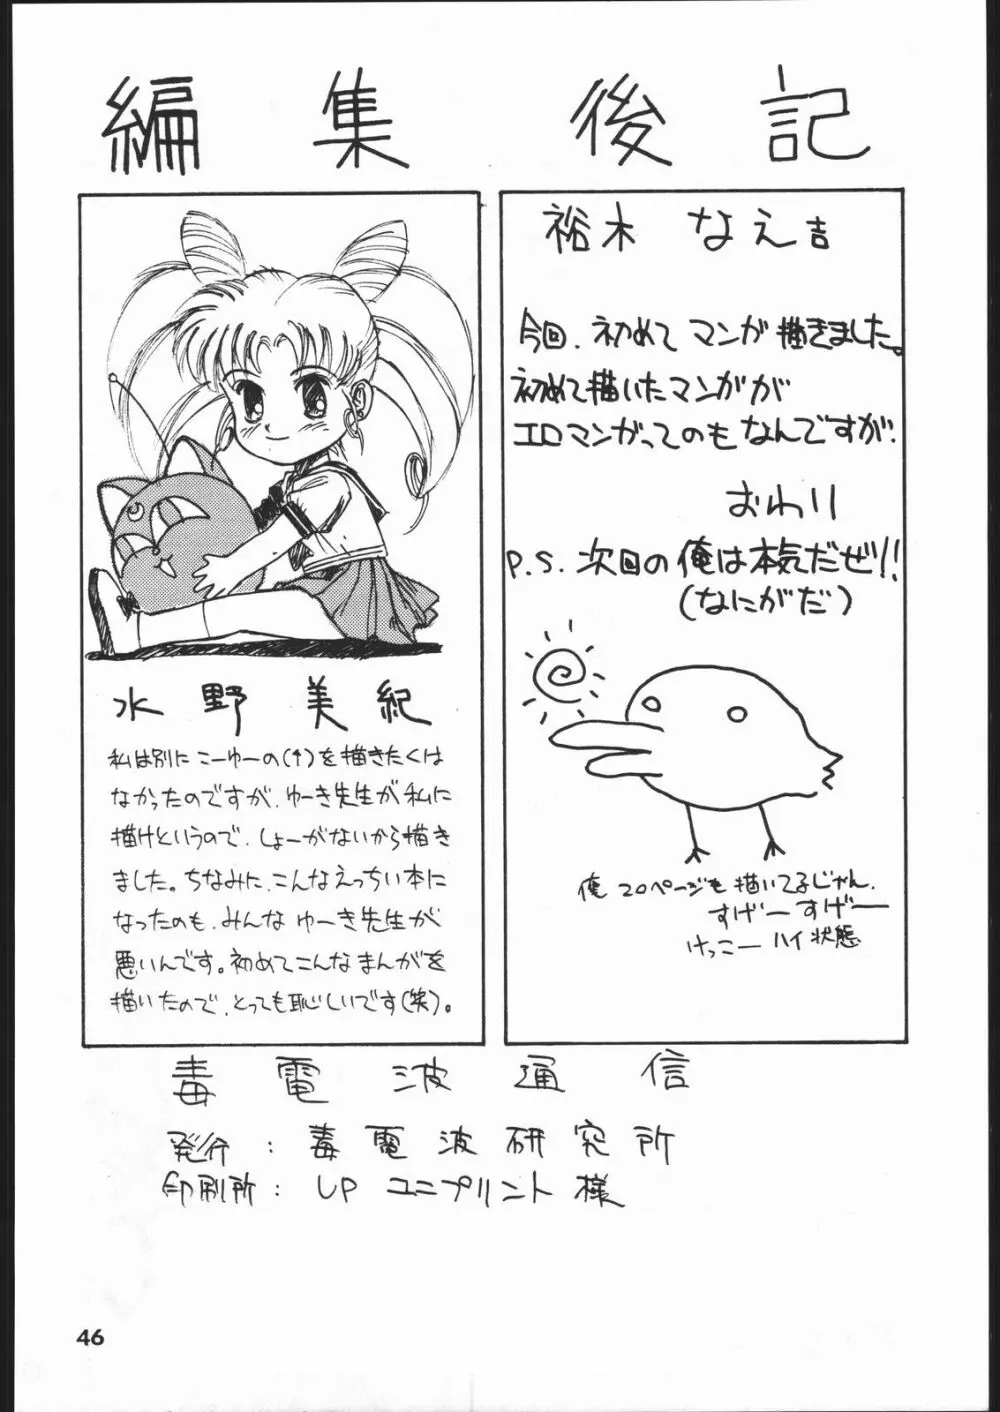 編集後記
裕木 なえ吉
今回、初めて マンが 描きました。
初めて描いたマンがが
エロマンがってのもなんですが、
おわり
P.S. 次回の俺は本気だぜ!!
(なにがだ)
俺20ページも描いてるじゃん、
すげーすげー
けっこー ハイ状態
水野美紀
私は別にこーゆーの(↑)を描きたくは
なかったのですが、ゆーき先生が私に
描けというので、しょーがないから描き
ました。ちなみに、こんなえっちい本に
なったのも、みんなゆーき先生が
悪いんです。初めてこんなまんがを
描いたので、とっても恥しいです(笑)。
毒電波通信
発行:毒電波研究所
印刷所:UP ユニプリント 様
46